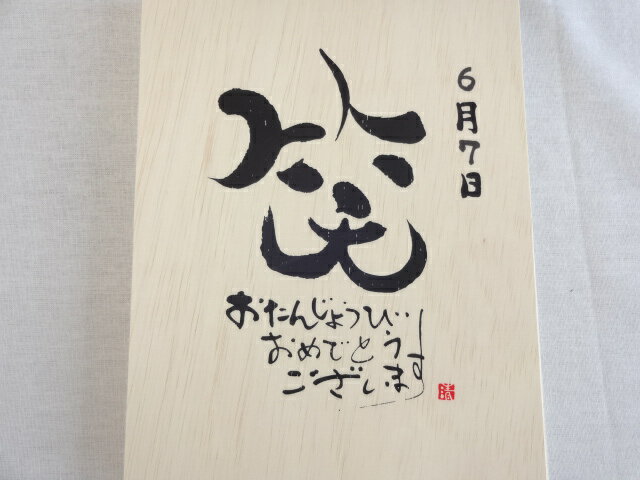 6月7日
笑
おたんじょうび
おめでとう
ございます